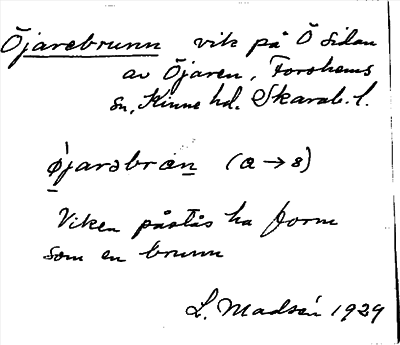 Öjarebrunn vik på Ö sidan
av Öjaren, Forshems
sn, Kinne hd. Skarab. l.
øjarabrøn (a → ə)
Viken påstås ha form
som en brunn
L. Madsén 1929